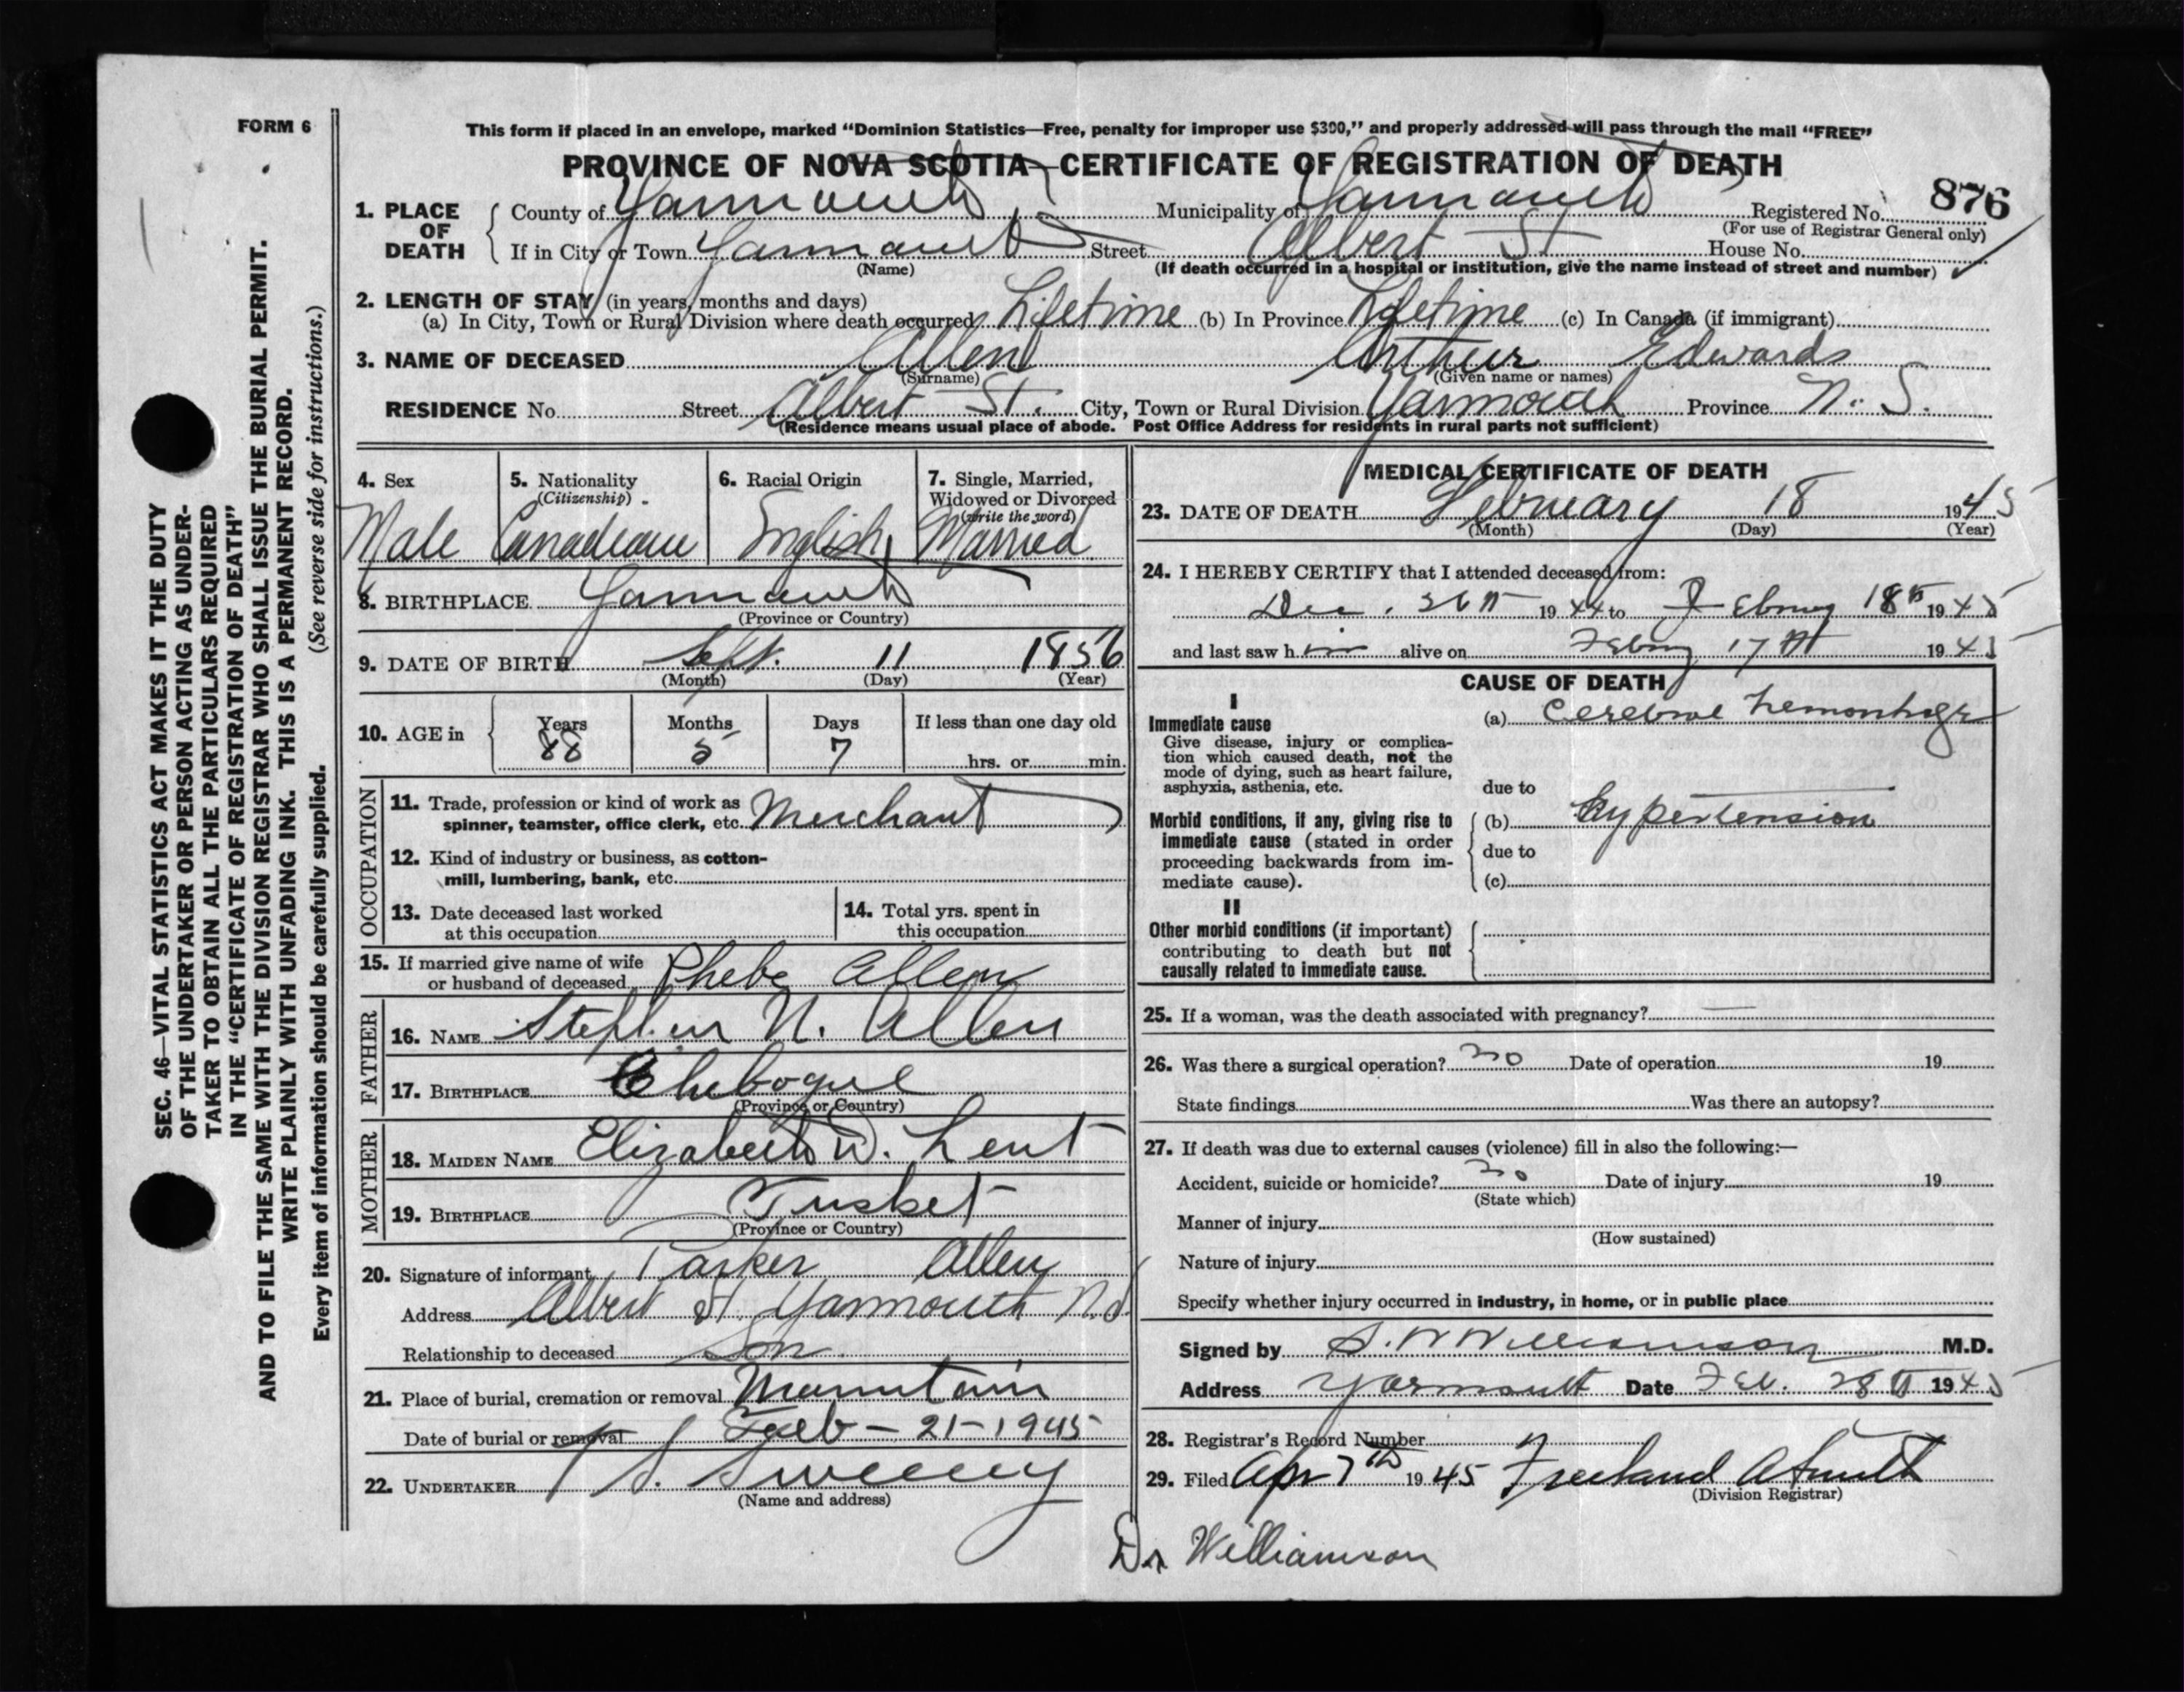 FORM 6
This form if placed in an envelope, marked "Dominion Statistics—Free, penalty for improper use $300," and properly addressed will pass through the mail "FREE"
PROVINCE OF NOVA SCOTIA—CERTIFICATE OF REGISTRATION OF DEATH
876
1. PLACE OF DEATH County of Yarmouth Municipality of Yarmouth Registered No.
(For use of Registrar General only)
If in City or Town Yarmouth Street Albert St House No.
(Name) (If death occurred in a hospital or institution, give the name instead of street and number)
2. LENGTH OF STAY (in years, months and days)
(a) In City, Town or Rural Division where death occurred Lifetime (b) In Province Lifetime (c) In Canada (if immigrant)
3. NAME OF DECEASED Allen Arthur Edwards
(Surname) (Given name or names)
RESIDENCE No. Street Albert St. City, Town or Rural Division Yarmouth Province N. S.
(Residence means usual place of abode. Post Office Address for residents in rural parts not sufficient)
4. Sex Male
5. Nationality (Citizenship) Canadian
6. Racial Origin English
7. Single, Married, Widowed or Divorced (write the word) Married
8. BIRTHPLACE Yarmouth
(Province or Country)
9. DATE OF BIRTH Sept. 11 1856
(Month) (Day) (Year)
10. AGE in Years Months Days If less than one day old
88 5 7 hrs. or min.
OCCUPATION
11. Trade, profession or kind of work as
spinner, teamster, office clerk, etc. Merchant
12. Kind of industry or business, as cotton-
mill, lumbering, bank, etc.
13. Date deceased last worked
at this occupation
14. Total yrs. spent in
this occupation
15. If married give name of wife
or husband of deceased Phebe Allen
FATHER
16. NAME Stephen N. Allen
17. BIRTHPLACE Chebogue
(Province or Country)
MOTHER
18. MAIDEN NAME Elizabeth D. Lent
19. BIRTHPLACE Tusket
(Province or Country)
20. Signature of informant Parker Allen
Address Albert St Yarmouth N.S
Relationship to deceased Son
21. Place of burial, cremation or removal Mountain
Date of burial or removal Feb - 21 - 1945
22. UNDERTAKER Sweeny
(Name and address)
MEDICAL CERTIFICATE OF DEATH
23. DATE OF DEATH February 18 1945
(Month) (Day) (Year)
24. I HEREBY CERTIFY that I attended deceased from:
Dec. 26th 1944 to Febuary 18th 1945
and last saw him alive on Febuary 17th 1945
CAUSE OF DEATH
I
Immediate cause (a) Cerebral hemorrhage
Give disease, injury or complica-
tion which caused death, not the
mode of dying, such as heart failure,
asphyxia, asthenia, etc.
due to
Morbid conditions, if any, giving rise to
immediate cause (stated in order
proceeding backwards from im-
mediate cause).
(b) Hypertension
due to
(c)
II
Other morbid conditions (if important)
contributing to death but not
causally related to immediate cause.
25. If a woman, was the death associated with pregnancy? —
26. Was there a surgical operation? no Date of operation 19
State findings Was there an autopsy?
27. If death was due to external causes (violence) fill in also the following:—
Accident, suicide or homicide? no Date of injury 19
(State which)
Manner of injury
(How sustained)
Nature of injury
Specify whether injury occurred in industry, in home, or in public place
Signed by S. W Williamson M.D.
Address Yarmouth Date Feb. 28th 1945
28. Registrar's Record Number
29. Filed Apr 7th 1945 Freeland
(Division Registrar)
Dr Williamson
SEC. 46—VITAL STATISTICS ACT MAKES IT THE DUTY
OF THE UNDERTAKER OR PERSON ACTING AS UNDER-
TAKER TO OBTAIN ALL THE PARTICULARS REQUIRED
IN THE "CERTIFICATE OF REGISTRATION OF DEATH"
AND TO FILE THE SAME WITH THE DIVISION REGISTRAR WHO SHALL ISSUE THE BURIAL PERMIT.
WRITE PLAINLY WITH UNFADING INK. THIS IS A PERMANENT RECORD.
Every item of information should be carefully supplied. (See reverse side for instructions.)